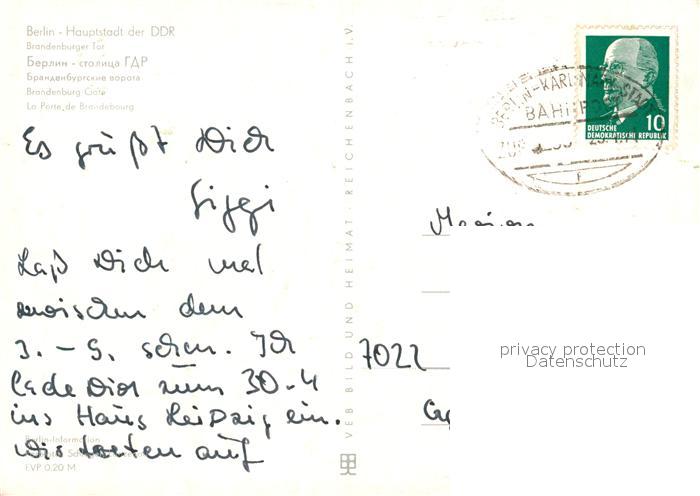 Berlin - Hauptstadt der DDR
Brandenburger Tor
Берлин - столица ГДР
Бранденбургские ворота
Brandenburg Gate
La Porte de Brandebourg
Es grüßt Dich
Siggi
Laß Dich mal
zwischen dem
3. - 5. sehen. Ich
lade Dich zum 30.4
ins Haus Leipzig ein.
Wir treten auf
Berlin-Information
EVP 0,20 M
VEB BILD UND HEIMAT REICHENBACH I.V.
BERLIN-KARL-MARX-STADT
BAHNPOST
ZUG
DEUTSCHE
DEMOKRATISCHE REPUBLIK
10
7022
privacy protection
Datenschutz